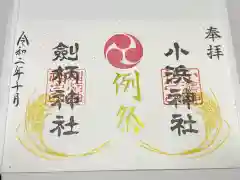 奉拝
小浜神社
例祭
劍柄神社
令和二年十月